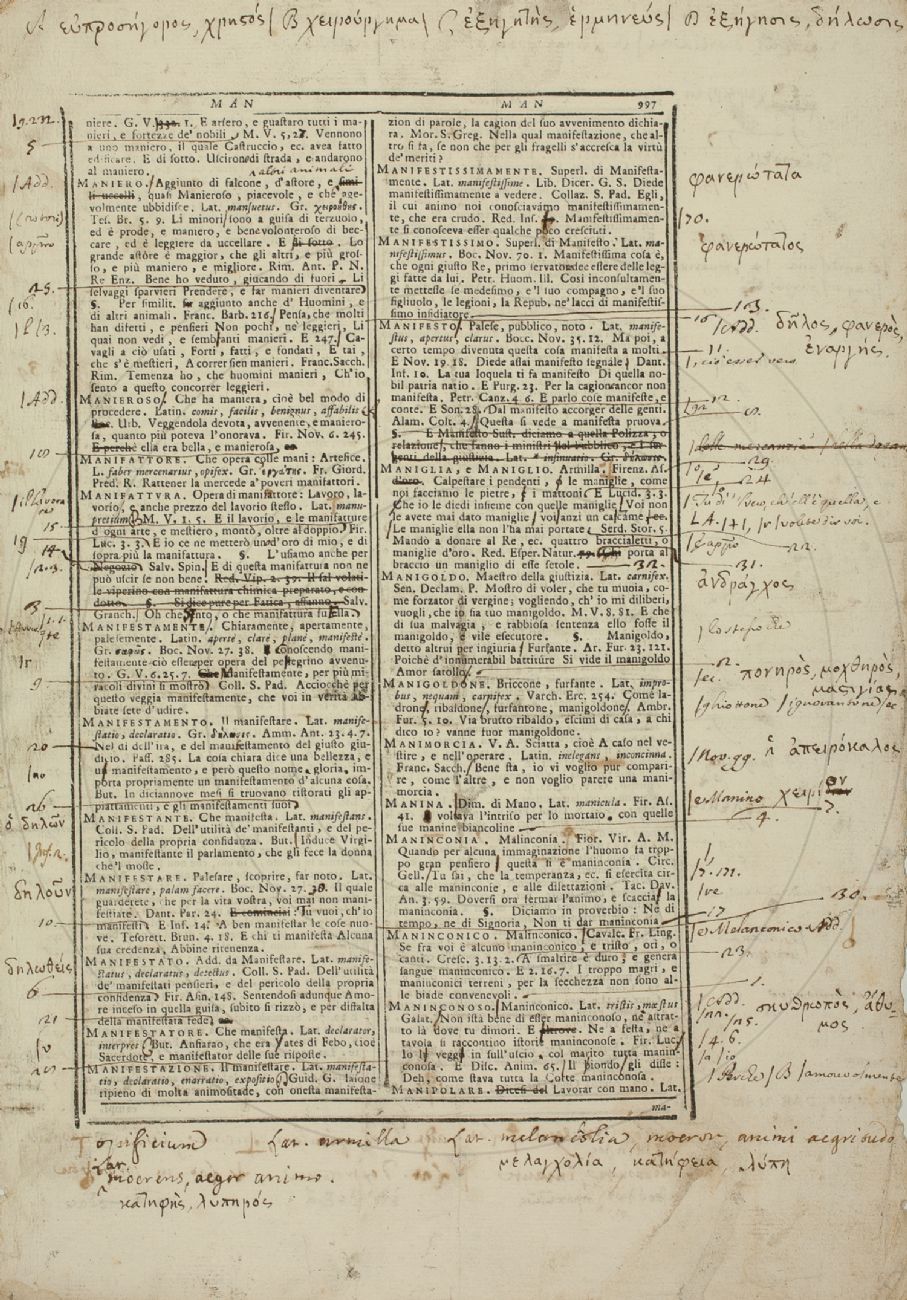 A εὐπροσήγορος, χρηςός / B χειρούργημα / C ἐξηγητής, ἑρμηνεύς / D ἐξήγησις, δήλωσις
MAN MAN 997
niere. G. V. 1. E arsero, e guastaro tutti i ma-
nieri, e fortezze de' nobili. M. V. 5, 27. Vennono
a uno maniero, il quale Castruccio, ec. avea fatto
edificare. E di sotto. Uscirono di strada, e andarono
al maniero.
altri animali
MANIERO. Aggiunto di falcone, d'astore, e simi-
li uccelli, quasi Manieroso, piacevole, e che age-
volmente ubbidisce. Lat. mansuetus. Gr. χειροήθης.
Tes. Br. 5. 9. Li minori sono a guisa di terzuolo,
ed è prode, e maniero, e benevolonteroso di bec-
care, ed è leggiere da uccellare. E di sotto. Lo
grande astore è maggior, che gli altri, e più gros-
so, e più maniero, e migliore. Rim. Ant. P. N.
Re Enz. Bene ho veduto, giucando di fuori, Li
selvaggi sparvieri Prendere, e far manieri diventare
§. Per similit. aggiunto anche d'Huomini, e
di altri animali. Franc. Barb. 216. Pensa, che molti
han difetti, e pensieri Non pochi, ne' leggieri, Li
quai non vedi, e sembranti manieri. E 247. Ca-
vagli a ciò usati, Forti, fatti, e fondati, E tai,
che s'è mestieri, A correr sien manieri. Franc. Sacch.
Rim. Temenza ho, che huomini manieri, Ch'io
sento a questo concorrer leggieri.
MANIEROSO. Che ha maniera, cioè bel modo di
procedere. Latin. comis, facilis, benignus, affabilis
Urb. Veggendola devota, avvenente, e maniero-
sa, quanto più poteva l'onorava. Fir. Nov. 6. 245.
E perchè ella era bella, e manierosa,
MANIFATTORE. Che opera colle mani: Artefice.
L. faber mercenarius, opifex. Gr. ἐργάτης. Fr. Giord.
Pred. R. Rattener la mercede a' poveri manifattori.
MANIFATTURA. Opera di manifattore: Lavoro, la-
vorìo, e anche prezzo del lavoro stesso. Lat. manu-
pretium. M. V. 1. 5. E il lavorio, e le manifatture
d'ogni arte, e mestiero, montò, oltre al doppio. Fir.
Luc. 3. 3. E io ce ne metterò und'oro di mio, e di
sopra più la manifattura. §. L'usiamo anche per
Negozio Salv. Spin. E di questa manifattura non ne
può uscir se non bene. Red. Vip. 2. 39. Il sal volati-
le viperino con manifattura chimica preparato, e con-
dotto. §. Si dice pure per Fatica, affanno. Salv.
Granch. Oh che sento, o che manifattura fu Ella.
MANIFESTAMENTE. Chiaramente, apertamente,
palesemente. Latin. apertè, clarè, planè, manifestè.
Gr. σαφῶς. Boc. Nov. 27. 38. Conoscendo mani-
festamente ciò essere per opera del pestegrino avvenu-
to. G. V. 6. 25. 7. Che Manifestamente, per più mi-
racoli divini si mostrò. Coll. S. Pad. Acciocchè per
questo veggia manifestamente, che voi in verità ab-
biate sete d'udire.
MANIFESTAMENTO. Il manifestare. Lat. manife-
statio, declaratio. Gr. δήλωσις. Amm. Ant. 23. 4. 7.
Nel dì dell'ira, e del manifestamento del giusto giu-
dicio. Pass. 285. La cosa chiara dice una bellezza, e
un manifestamento, e però questo nome, gloria, im-
porta propriamente un manifestamento d'alcuna cosa.
But. In diciannove mesi si truovano ristorati gli ap-
piattamenti, e gli manifestamenti suoi
MANIFESTANTE. Che manifesta. Lat. manifestans.
Coll. S. Pad. Dell'utilità de' manifestanti, e del pe-
ricolo della propria confidanza. But. Induce Virgi-
lio, manifestante il parlamento, che gli fece la donna
che'l mosse.
MANIFESTARE. Palesare, scoprire, far noto. Lat.
manifestare, palam facere. Boc. Nov. 27. 30. Il quale
guarderete, che per la vita vostra, voi mai non mani-
festiate. Dant. Par. 24. E cominciai: Tu vuoi, ch'io
manifesti E Inf. 14. A ben manifestar le cose nuo-
ve. Tesorett. Brun. 4. 18. E chi ti manifesta Alcuna
sua credenza, Abbine ritenenza.
MANIFESTATO. Add. da Manifestare. Lat. manife-
status, declaratus, detectus. Coll. S. Pad. Dell'utilità
de' manifestati pensieri, e del pericolo della propria
confidenza. Fir. Asin. 148. Sentendosi adunque Amo-
re inceso in quella guisa, subito si rizzò, e per disfatta
della manifestata fede,
MANIFESTATORE. Che manifesta. Lat. declarator,
interpres. But. Anfiarao, che era Vates di Febo, cioè
Sacerdote, e manifestator delle sue risposte.
MANIFESTAZIONE. Il manifestare. Lat. manifesta-
tio, declaratio, enarratio, expositio. Guid. G. Iasone
ripieno di molta animosidade, con onesta manifesta-
zion di parole, la cagion del suo avvenimento dichia-
ra. Mor. S. Greg. Nella qual manifestazione, che al-
tro si fa, se non che per gli fragelli s'accresca la virtù
de' meriti?
MANIFESTISSIMAMENTE. Superl. di Manifesta-
mente. Lat. manifestissime. Lib. Dicer. G. S. Diede
manifestissimamente a vedere. Collaz. S. Pad. Egli,
il cui animo noi conosciavamo manifestissimamen-
te, che era crudo. Red. Ins. Manifestissimamen-
te si conosceva esser qualche poco cresciuti.
MANIFESTISSIMO. Superl. di Manifesto. Lat. ma-
nifestissimus. Boc. Nov. 70. 1. Manifestissima cosa è,
che ogni giusto Re, primo servatore dee essere delle leg-
gi fatte da lui. Petr. Huom. Ill. Così inconsultamen-
te mettesse se medesimo, e'l suo compagno, e'l suo
figliuolo, le legioni, la Repub. ne' lacci di manifestis-
simo insidiatore.
MANIFESTO. Palese, pubblico, noto. Lat. manife-
stus, apertus, clarus. Bocc. Nov. 35. 12. Ma poi, a
certo tempo divenuta questa cosa manifesta a molti.
E Nov. 19. 18. Diede assai manifesto segnale. Dant.
Inf. 10. La tua loquela ti fa manifesto Di quella no-
bil patria natio. E Purg. 23. Per la cagion ancor non
manifesta. Petr. Canz. 4. 6. E parlo cose manifeste, e
conte. E Son. 28. Dal manifesto accorger delle genti.
Alam. Colt. 4. Questa si vede a manifesta pruova.
§. E Manifesto Sust. diciamo a quella Polizza, o
relazione, che fanno i ministri del pubblico, a' ser-
genti della giustizia. Lat. insinuatio. Gr.
MANIGLIA, e MANIGLIO. Armilla. Firenz. As.
d'oro. Calpestare i pendenti, e le maniglie, come
noi facciamo le pietre, e i mattoni. E Lucid. 3. 3.
Che io le diedi insieme con quelle maniglie. Voi non
le avete mai dato maniglie, voi, anzi un calcame, ec.
Le maniglie ella non l'ha mai portate. Serd. Stor. 5.
Mandò a donare al Re, ec. quattro braccialetti, o
maniglie d'oro. Red. Esper. Natur. porta al
braccio un maniglio di esse setole.
MANIGOLDO. Maestro della giustizia. Lat. carnifex.
Sen. Declam. P. Mostrò di voler, che tu muoia, co-
me forzator di vergine; vogliendo, ch'io mi diliberi,
vuogli, che io sia tuo manigoldo. M. V. 8. 81. E che
di sua malvagia, e rabbiosa sentenza ello fosse il
manigoldo, e vile esecutore. §. Manigoldo,
detto altrui per ingiuria, Furfante. Ar. Fur. 23. 121.
Poichè d'innumerabil battiture Si vide il manigoldo
Amor satollo.
MANIGOLDONE. Briccone, furfante. Lat. impro-
bus, nequam, carnifex. Varch. Erc. 254. Come la-
drone, ribaldone, furfantone, manigoldone. Ambr.
Fur. 5. 10. Via brutto ribaldo, escimi di casa, a chi
dico io? vanne fuor manigoldone.
MANIMORCIA. V. A. Sciatta, cioè A caso nel ve-
stire, e nell'operare. Latin. inelegans, inconcinna.
Franc. Sacch. Bene sta, io vi voglio pur compari-
re, come l'altre, e non voglio parere una mani-
morcia.
MANINA. Dim. di Mano. Lat. manicula. Fir. As.
41. E voltava l'intriso per lo mortaio, con quelle
sue manine biancoline
MANINCONIA. Malinconia. Fior. Vir. A. M.
Quando per alcuna immaginazione l'huomo fa trop-
po gran pensiero, questa si è maninconia. Circ.
Gell. Tu sai, che la temperanza, ec. si esercita cir-
ca alle maninconie, e alle dilettazioni. Tac. Dav.
An. 3. 59. Doversi ora fermar l'animo, e scacciar la
maninconia. §. Diciamo in proverbio: Nè di
tempo, nè di Signoria, Non ti dar maninconia
MANINCONICO. Malinconico. Cavalc. Fr. Ling.
Se fra voi è alcuno maninconico, e tristo, ori, o
canti. Cresc. 3. 13. 2. A smaltire è duro, e genera
sangue maninconico. E 2. 16. 7. I troppo magri, e
maninconici terreni, per la secchezza non sono al-
le biade convenevoli.
MANINCONOSO. Maninconico. Lat. tristis, mœstus
Galat. Non istà bene di esser maninconoso, nè astrat-
to là dove tu dimori. E altrove. Nè a festa, nè a
tavola si raccontino istorie maninconose. Fir. Luc.
Io la veggi in sull'uscio, col marito tutta manin-
conosa. E Disc. Anim. 65. Il piondo gli disse:
Deh, come stava tutta la Corte maninconosa.
MANIPOLARE. Dicesi del Lavorar con mano. Lat.
ma-
Add.
5
25.
16.
Add.
100
15
14
3
9
20
26
ὁ δηλῶν
δηλοῦν
10
δηλωθείς
6
21
φανερώτατα
70.
φανερώτατος
103
Add. δῆλος, φανερός,
ἐναργής.
29
24
22
31.
ἀνδράχος
πονηρός, μοχθηρός,
μαστιγίας
ghiottone
Nov. 99. ἀπειρόκαλος
e Manino
4.
30.
17
e Melanconico Add.
23
Add. σκυθρωπός, ἄθυ-
μος
4. 6.
opificium Lat. armilla Lat. melancholia, moeror, animi aegritudo
μελαγχολία, κατήφεια, λύπη
Lat.
moerens, aeger animo.
κατηφής, λυπηρός